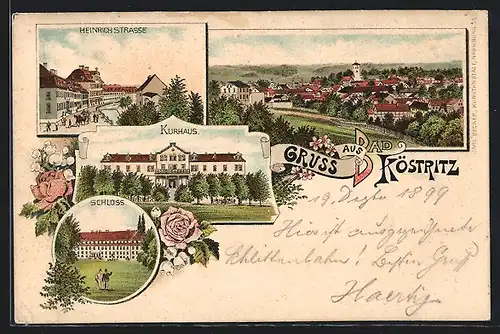 HEINRICHSTRASSE
KURHAUS.
SCHLOSS
GRUSS AUS BAD KÖSTRITZ
19. Dezbr 1899
Hier ist ausgezeichnete
Schlittenbahn! Besten Gruß
Haertig